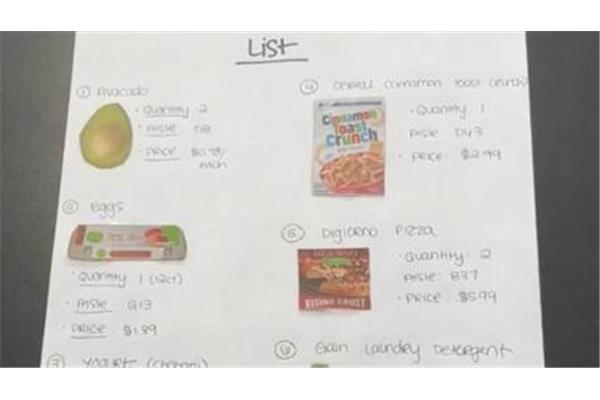 List
① Avocado
· Quantity 2
· Aisle
· PRICE $0.78/
each
② Eggs
· Quantity 1 (12ct)
· Aisle G13
· PRICE $1.89
Yogurt (chobani)
④ Cereal (cinnamon toast crunch)
Cinnamon
Toast
Crunch
· Quantity 1
· Aisle D43
· PRICE $2.99
⑤ Digiorno Pizza
RISING CRUST
· Quantity: 2
· Aisle: B37
· PRICE: $5.99
⑥ Gain Laundry Detergent